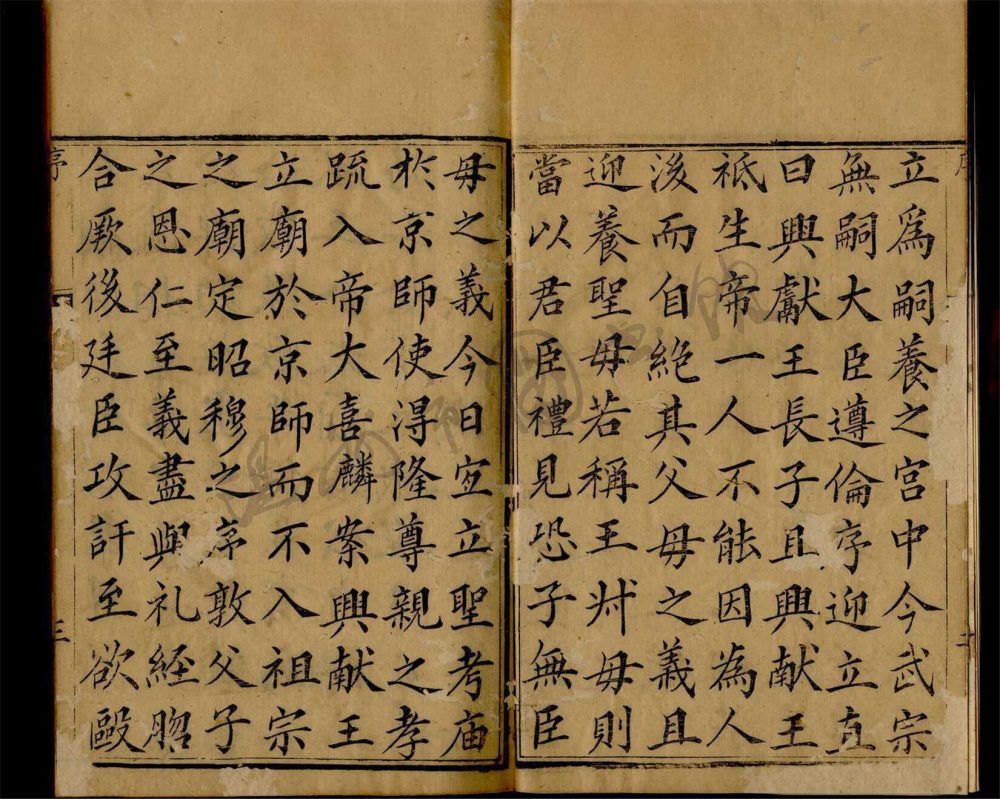 立爲嗣養之宫中今武宗
無嗣大臣遵倫序迎立直
曰興獻王長子且興献王
祇生帝一人不能因為人
後而自絶其父母之義且
迎養聖母若稱王叔母則
當以君臣禮見恐子無臣
母之義今日宜立聖考庙
於京師使得隆尊親之孝
疏入帝大喜麟案興献王
立廟於京師而不入祖宗
之廟定昭穆之序敦父子
之恩仁至義盡與礼経脗
合厥後廷臣攻訐至欲毆
序
三